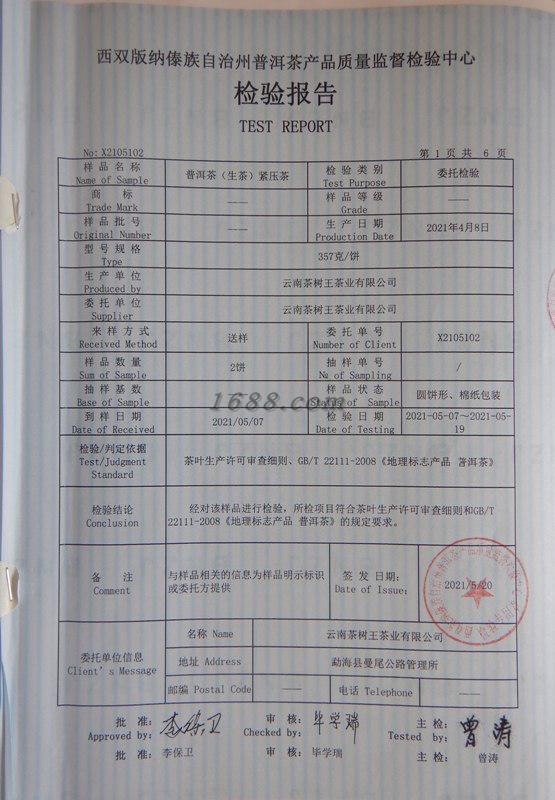 西双版纳傣族自治州普洱茶产品质量监督检验中心
检验报告
TEST REPORT
No: X2105102 第 1 页 共 6 页
样品名称 普洱茶（生茶）紧压茶 检验类别 委托检验
Name of Sample Test Purpose
商标 —— 样品等级 ——
Trade Mark Grade
样品批号 —— 生产日期 2021年4月8日
Original Number Production Date
型号规格 357克/饼
Type
生产单位 云南茶树王茶业有限公司
Produced by
委托单位 云南茶树王茶业有限公司
Supplier
来样方式 送样 委托单号 X2105102
Received Method Number of Client
样品数量 2饼 抽样单号 /
Sum of Sample № of Sampling
抽样基数 样品状态 圆饼形、棉纸包装
Base of Sample of Sample
1688.com
到样日期 2021/05/07 检验日期 2021-05-07～2021-05-19
Date of Received Date of Testing
检验/判定依据 茶叶生产许可审查细则、GB/T 22111-2008《地理标志产品 普洱茶》
Test/Judgment
Standard
检验结论 经对该样品进行检验，所检项目符合茶叶生产许可审查细则和GB/T
Conclusion 22111-2008《地理标志产品 普洱茶》的规定要求。
备注 与样品相关的信息为样品明示标识 签发日期： 2021/5/20
Comment 或委托方提供 Date of Issue:
委托单位信息
Client's Message
名称 Name 云南茶树王茶业有限公司
地址 Address 勐海县曼尾公路管理所
邮编 Postal Code —— 电话 Telephone ——
批准： 李保卫 审核： 毕学瑞 主检： 曾涛
Approved by: Checked by: Tested by:
批准： 李保卫 审核： 毕学瑞 主检： 曾涛